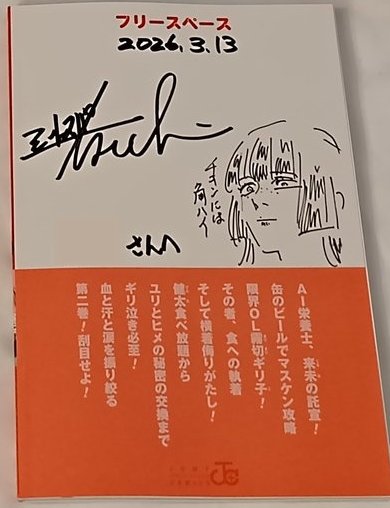 フリースペース
2026.3.13
チキンには
角ハイ
さんへ
AI栄養士、来未の託宣!
缶のビールでマスケン攻略
限界OL霧切ギリ子!
その者、食への執着
そして横着侮りがたし!
健太食べ放題から
ユリとヒメの秘密の交換まで
ギリ泣き必至!
血と汗と涙を振り絞る
第二巻!刮目せよ!